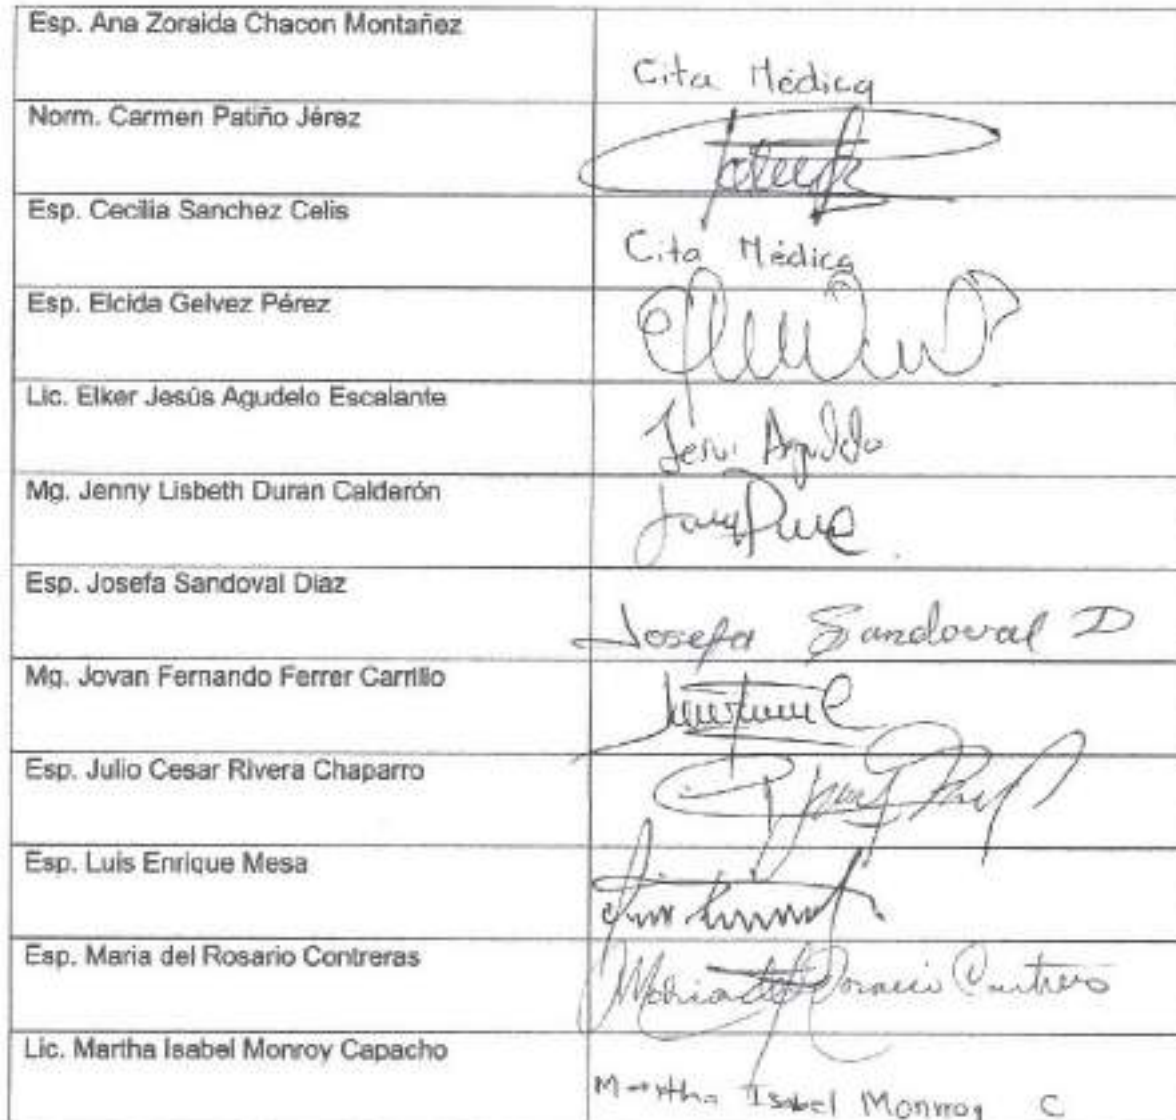 Esp. Ana Zoraida Chacon Montañez
Cita Médica
Norm. Carmen Patiño Jérez
Esp. Cecilia Sanchez Celis
Cita Médica
Esp. Elcida Gelvez Pérez
Lic. Elker Jesús Agudelo Escalante
Mg. Jenny Lisbeth Duran Calderón
Esp. Josefa Sandoval Diaz
Josefa Sandoval D
Mg. Jovan Fernando Ferrer Carrillo
Esp. Julio Cesar Rivera Chaparro
Esp. Luis Enrique Mesa
Esp. Maria del Rosario Contreras
Lic. Martha Isabel Monroy Capacho
Martha Isabel Monroy C